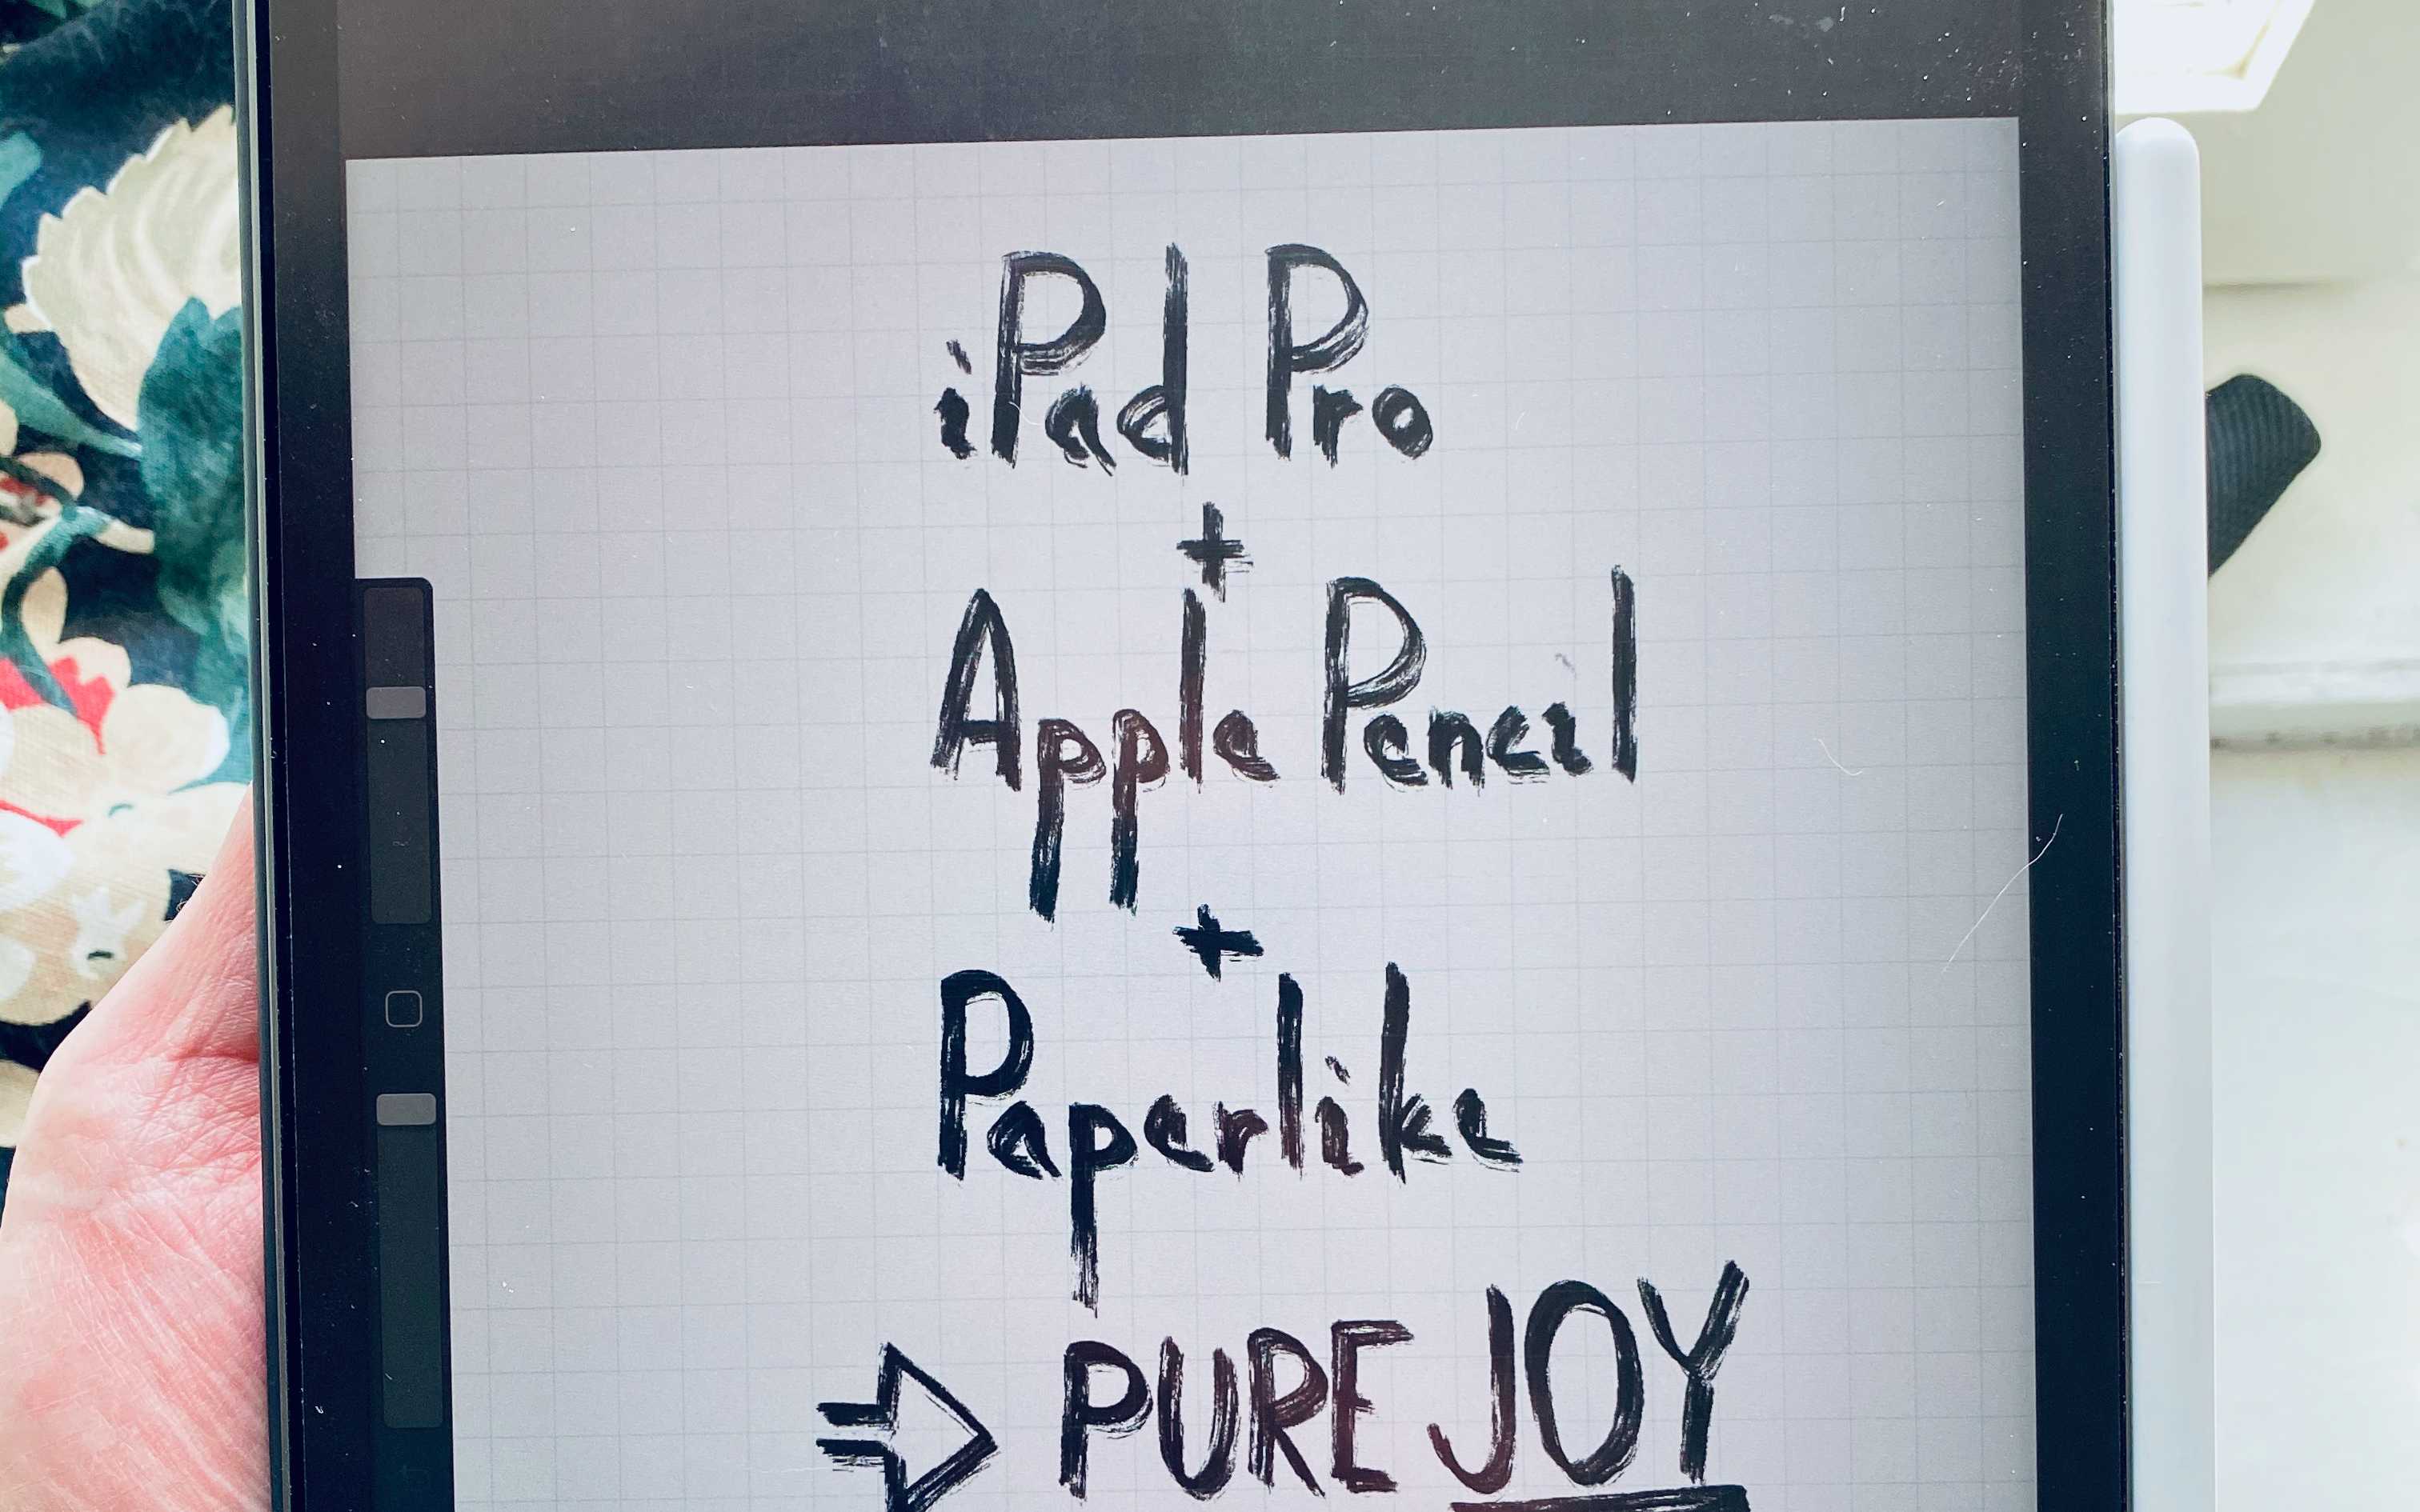 iPad Pro
+
Apple Pencil
+
Paperlike
⇨ PURE JOY